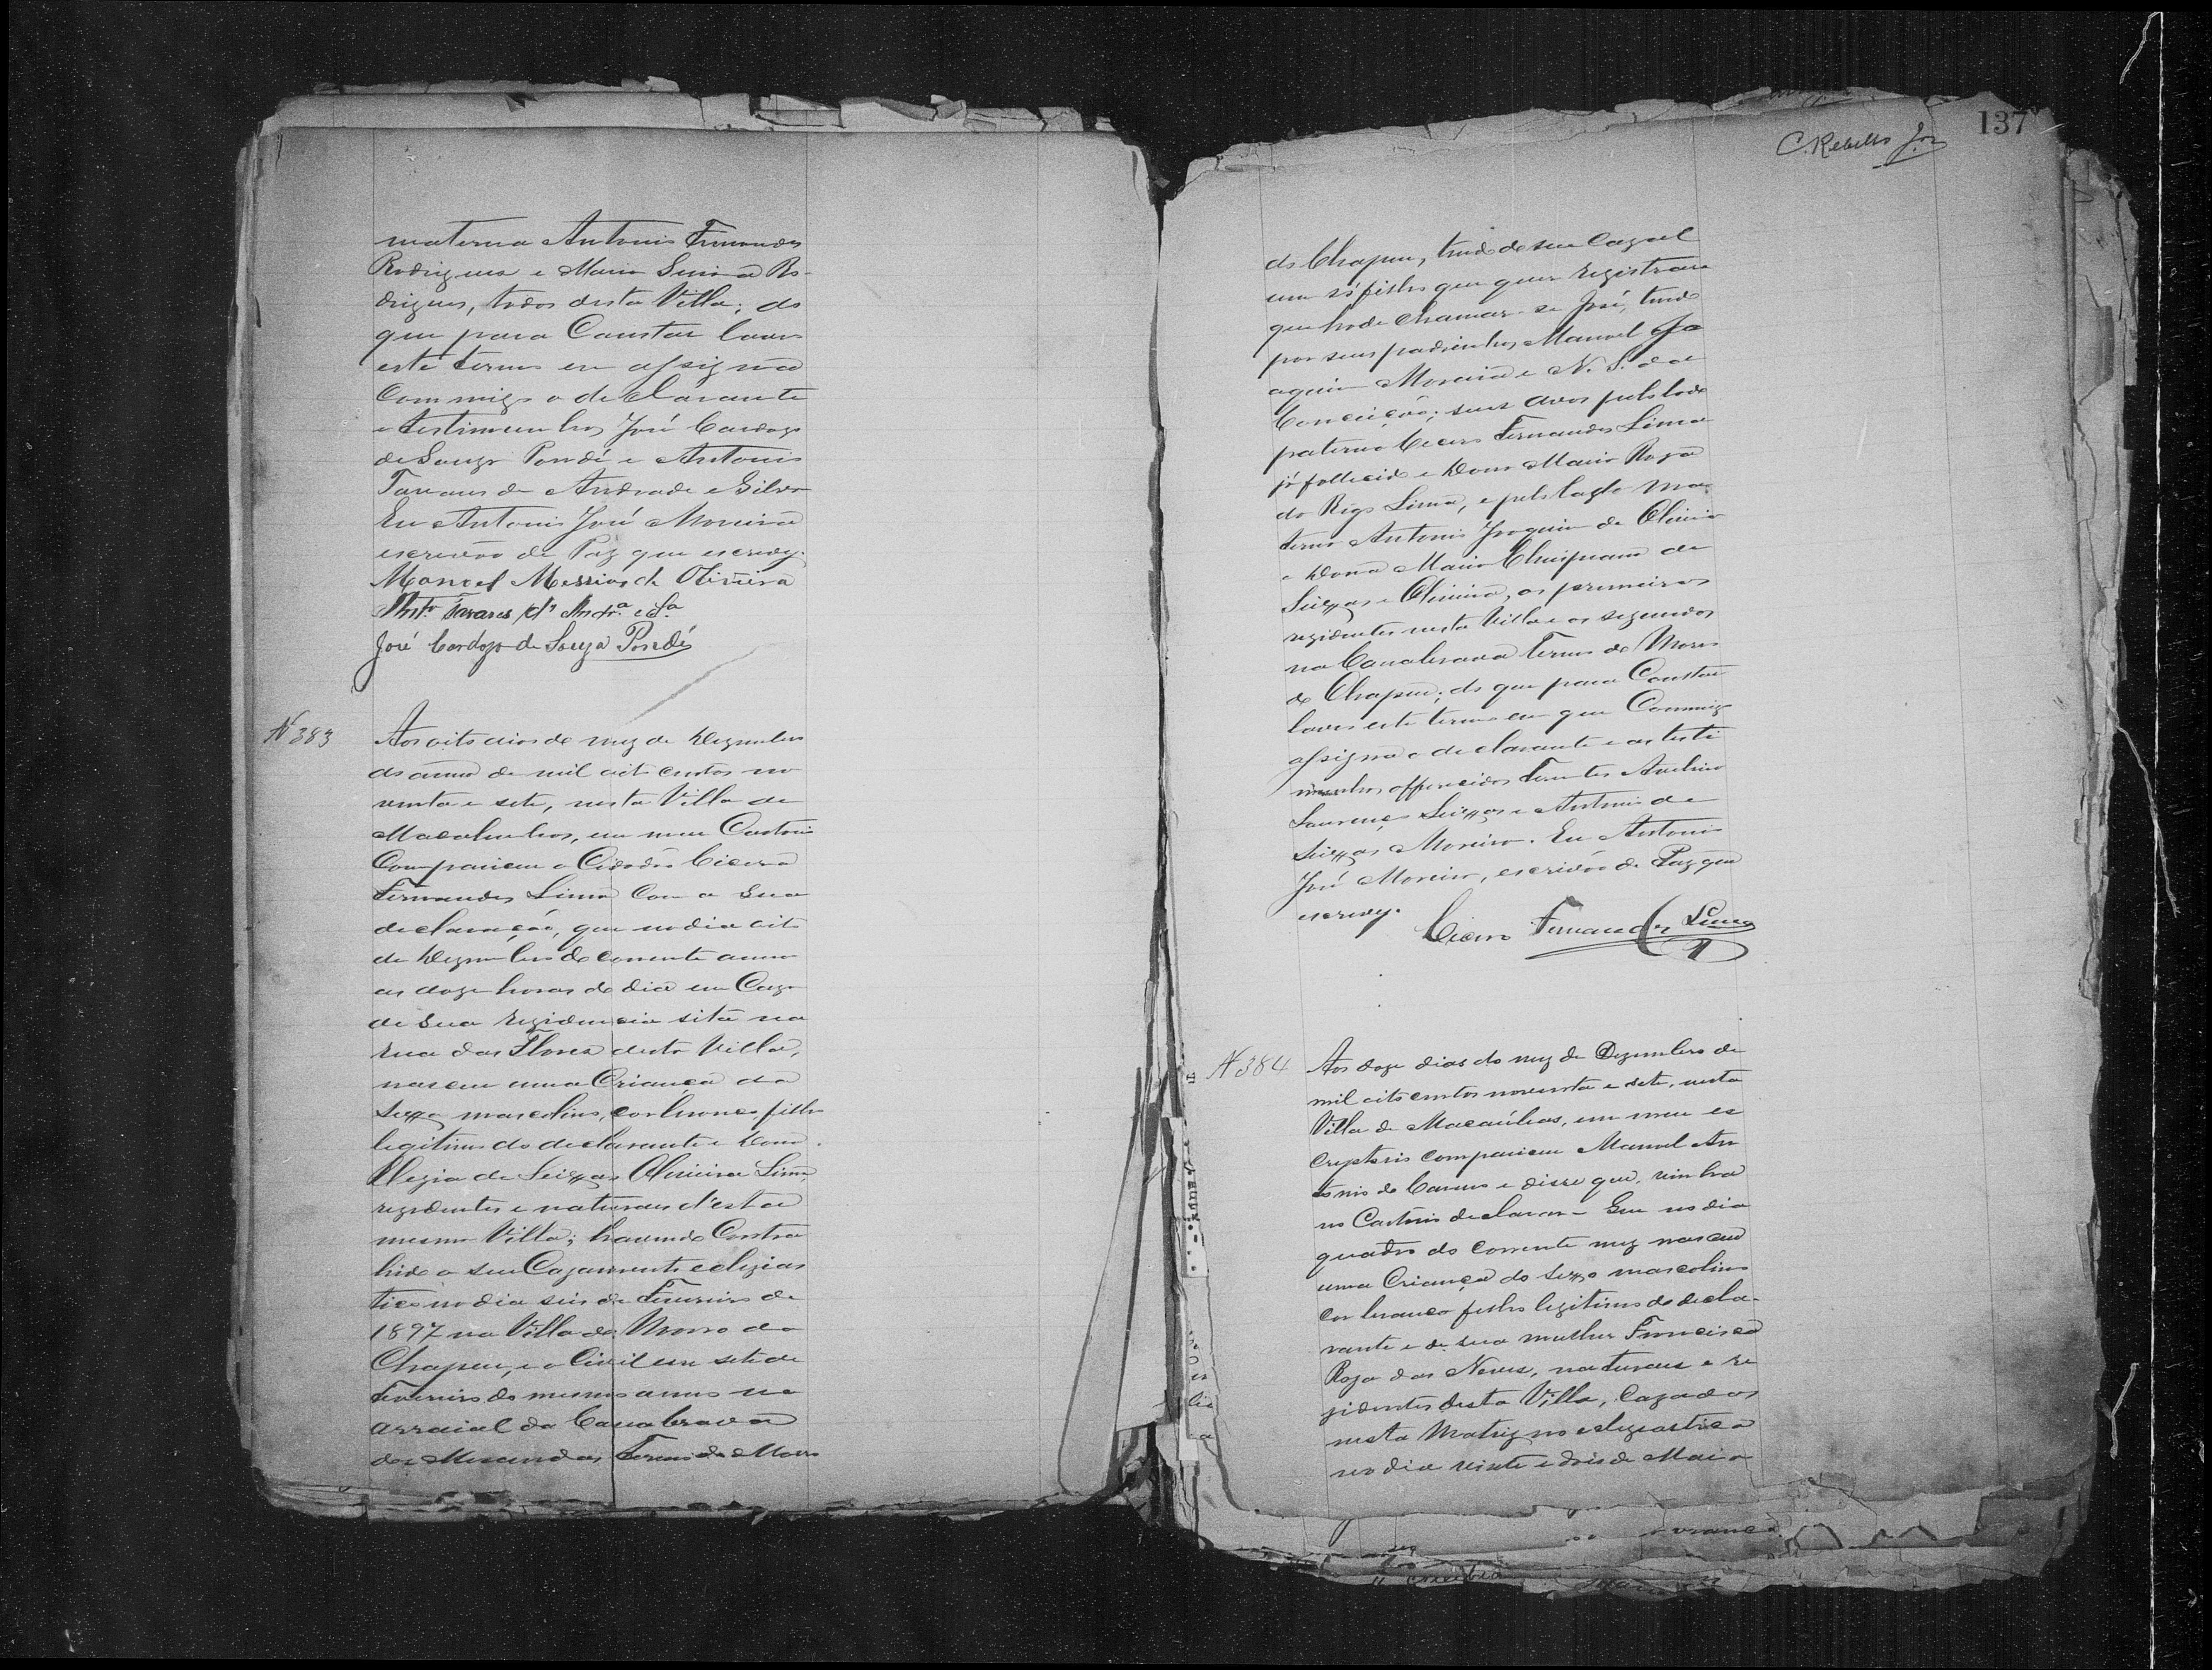 materna Antonio Fernandes
Rodrigues e Maria Senira Ro-
drigues, todos desta Villa; do
que para Constar lavro
este termo em assigna
Commigo o declarante
e testimunhas José Cardozo
de Souza Pondé e Antonio
Tavares de Andrade e Silva
Eu Antonio José Moreira
escrivão de Paz que escrevy.
Manoel Messias de Oliveira
Anto. Tavares de Andra. e Sa.
José Cardozo de Souza Pondé
N 383
Aos oito dias do mez de Dezembro
do anno de mil oito centos no
venta e sete, nesta Villa de
Macahubas, em meu Cartorio
Compareceu o Cidadão Cicero
Fernandes Lima Com a sua
declaração, que no dia oito
de Dezembro do corrente anno
as doze horas do dia em Caza
de sua rezidencia sita na
rua das Flores desta Villa,
nasceu uma Criança do
sexxo mascolino, cor branca filho
legitimo do declarante e Dona
Elezia de Seixxas Oliveira Lima,
rezidentes e naturaes d'esta
mesma Villa; havendo Contra
hido o seu Cazamento eclezias
tico no dia seis de Fevereiro de
1897 na Villa do Morro do
Chapeu, e o Civil em sete de
Fevereiro do mesmo anno no
arraial da Cannabrava
dos Mirandas Termo do Morro
137
C. Rebello Jor
do Chapeu, tendo de seu Cazal
um só filho que quer registrar
que hade chamar-se José, tendo
por seus padrinhos Manoel Jo
aquim Moreira e N. S. da
Conceição; seus avos pelo lado
paterno Cicero Fernandes Lima
já fallecido e Dona Maria Roza
do Rego Lima, e pelo lado ma
terno Antonio Joaquim de Oliveira
e Dona Maria Chrispiana de
Seixxas e Oliveira, os premeiros
rezidentes nesta Villa e os segundos
na Canabrava Termo do Morro
do Chapeu; do que para Constar
lavro este termo em que Commigo
assigna o declarante e as testi
munhas offerecidas Tenentes Avelino
Lourenço Seixxas e Antonio de
Seixxas Moreira. Eu Antonio
José Moreira, escrivão de Paz que
escrevy.
Cicero Fernandes Lima
N 384
Aos doze dias do mez de Dezembro de
mil oito centos noventa e sete, nesta
Villa de Macaúbas, em meu es
cryptorio compareceu Manoel An
tonio do Carmo e disse que, vinha
no Cartorio declarar - Que no dia
quatro do corrente mez nasceu
uma Criança do sexxo mascolino
cor branca filho legitimo do decla-
rante e de sua mulher Francisca
Roza das Neves, naturaes e re
zidentes desta Villa, Cazados
nesta Matriz no eclezeastico
no dia vinte e dois de Maio